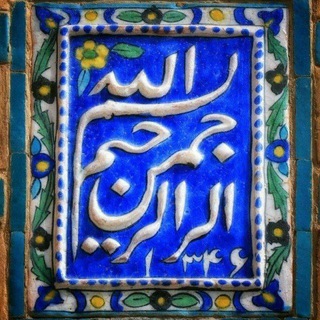 بسم الله
الرحمن الرحیم
۱۳۴۶